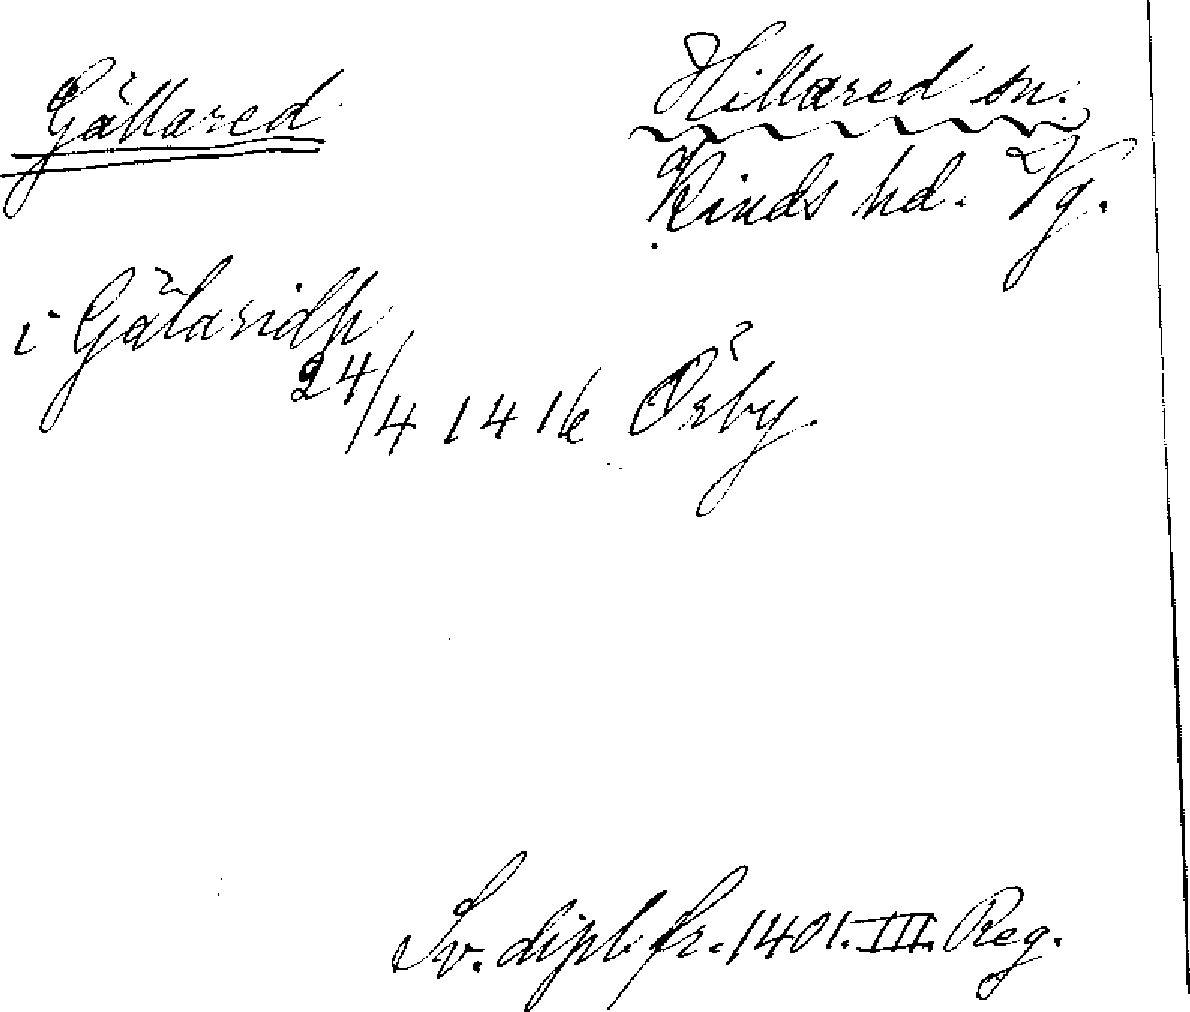 Gällared
Hillared sn.
Kinds hd. Vg.
i Gälaridh
24/4 1416 Örby.
Sv. dipl. fr. 1401. III. Reg.